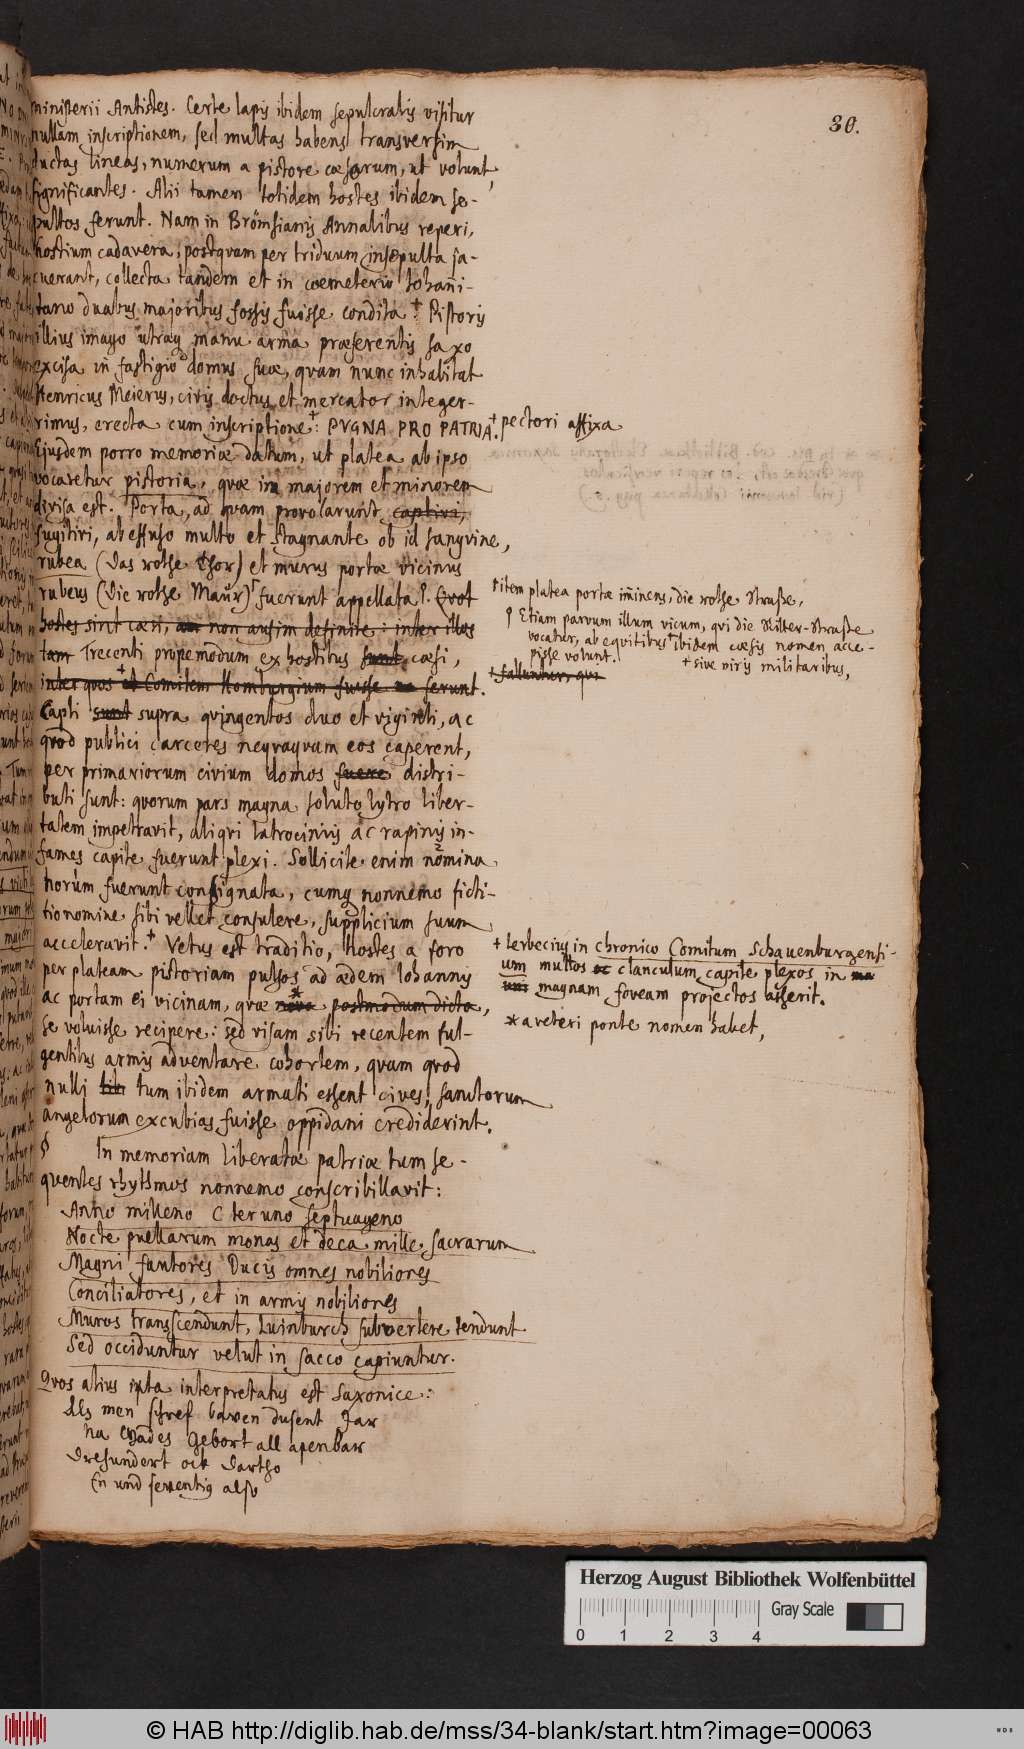 30.
ministerii Antistes. Certe lapis ibidem sepulcralis visitur
nullam inscriptionem, sed multas habens transversim
ductas lineas, numerum a pistore cæsorum, ut volunt,
significantes. Alii tamen totidem hostes ibidem se-
pultos ferunt. Nam in Brömsianis Annalibus reperi,
hostium cadavera, postqvam per triduum insepulta ja-
cuerant, collecta tandem et in cœmeterio Iohani-
tano duabus majoribus fossis fuisse condita. † Pistoris
illius imago utraq manu arma præferentis saxo
excisa in fastigio domus suæ, qvam nunc inhabitat
Henricus Meierus, civis doctus et mercator integer-
rimus, erecta cum inscriptione †: PVGNA PRO PATRIA.
† pectori affixa
Ejusdem porro memoriæ datum, ut platea ab ipso
vocaretur pistoria, qvæ in majorem et minorem
divisa est. Porta, ad qvam provolarunt captivi,
fugitivi, ab effuso multo et stagnante ob id sangvine,
rubea (das rothe Thor) et murus portæ vicinus
rubeus (die rothe Maur) fuerunt appellata. Qvot
item platea portæ iminens, die rothe Straße,
Etiam parvum illum vicum, qvi die Ritter-Straße
vocatur, ab eqvitibus † ibidem cæsis nomen acce-
pisse volunt.
† sive viris militaribus,
hostes sint cæsi, non ausim definite: inter illos
tam Trecenti propemodum ex hostibus sunt cæsi,
inter qvos † et Comitem Homburgium fuisse ferunt.
† falluntur, qvi
Capti sunt supra qvingentos duo et viginti, ac
qvod publici carceres neqvaqvam eos caperent,
per primariorum civium domos fuere distri-
buti sunt: qvorum pars magna soluto lytro liber-
tatem impetravit, aliqvi latrociniis ac rapiniis in-
fames capite fuerunt plexi. Sollicite enim nomina
horum fuerunt consignata, cumq nonnemo ficti-
tio nomine sibi vellet consulere, supplicium suum
acceleravit. † Vetus est traditio, hostes a foro
† Lerbecius in chronico Comitum Schauenburgensi-
um multos clanculum capite plexos in
magnam foveam projectos asserit.
per plateam pistoriam pulsos ad ædem Iohannis
ac portam ei vicinam, qvæ * nova postmodum dicta,
* a veteri ponte nomen habet,
se voluisse recipere: sed visam sibi recentem ful-
gentibus armis adventare cohortem, qvam qvod
nulli tum ibidem armati essent cives, sanctorum
angelorum excubias fuisse oppidani crediderint.
§ In memoriam liberatæ patriæ tum se-
qventes rhytmos nonnemo conscribillavit:
Anno milleno C ter uno septuageno
Nocte puellarum monas et deca mille sacrarum
Magni fautores Ducis omnes nobiliores
Conciliatores, et in armis nobiliores
Muros transcendunt, Luinburch subvertere tendunt
Sed occiduntur velut in sacco capiuntur.
Qvos alius ista interpretatus est Saxonice:
Als men schref baven dusent Jar
Na Gades Gebort all apenbar
Drehundert ock dartho
En und seventig also
Herzog August Bibliothek Wolfenbüttel
Gray Scale
0 1 2 3 4
© HAB http://diglib.hab.de/mss/34-blank/start.htm?image=00063